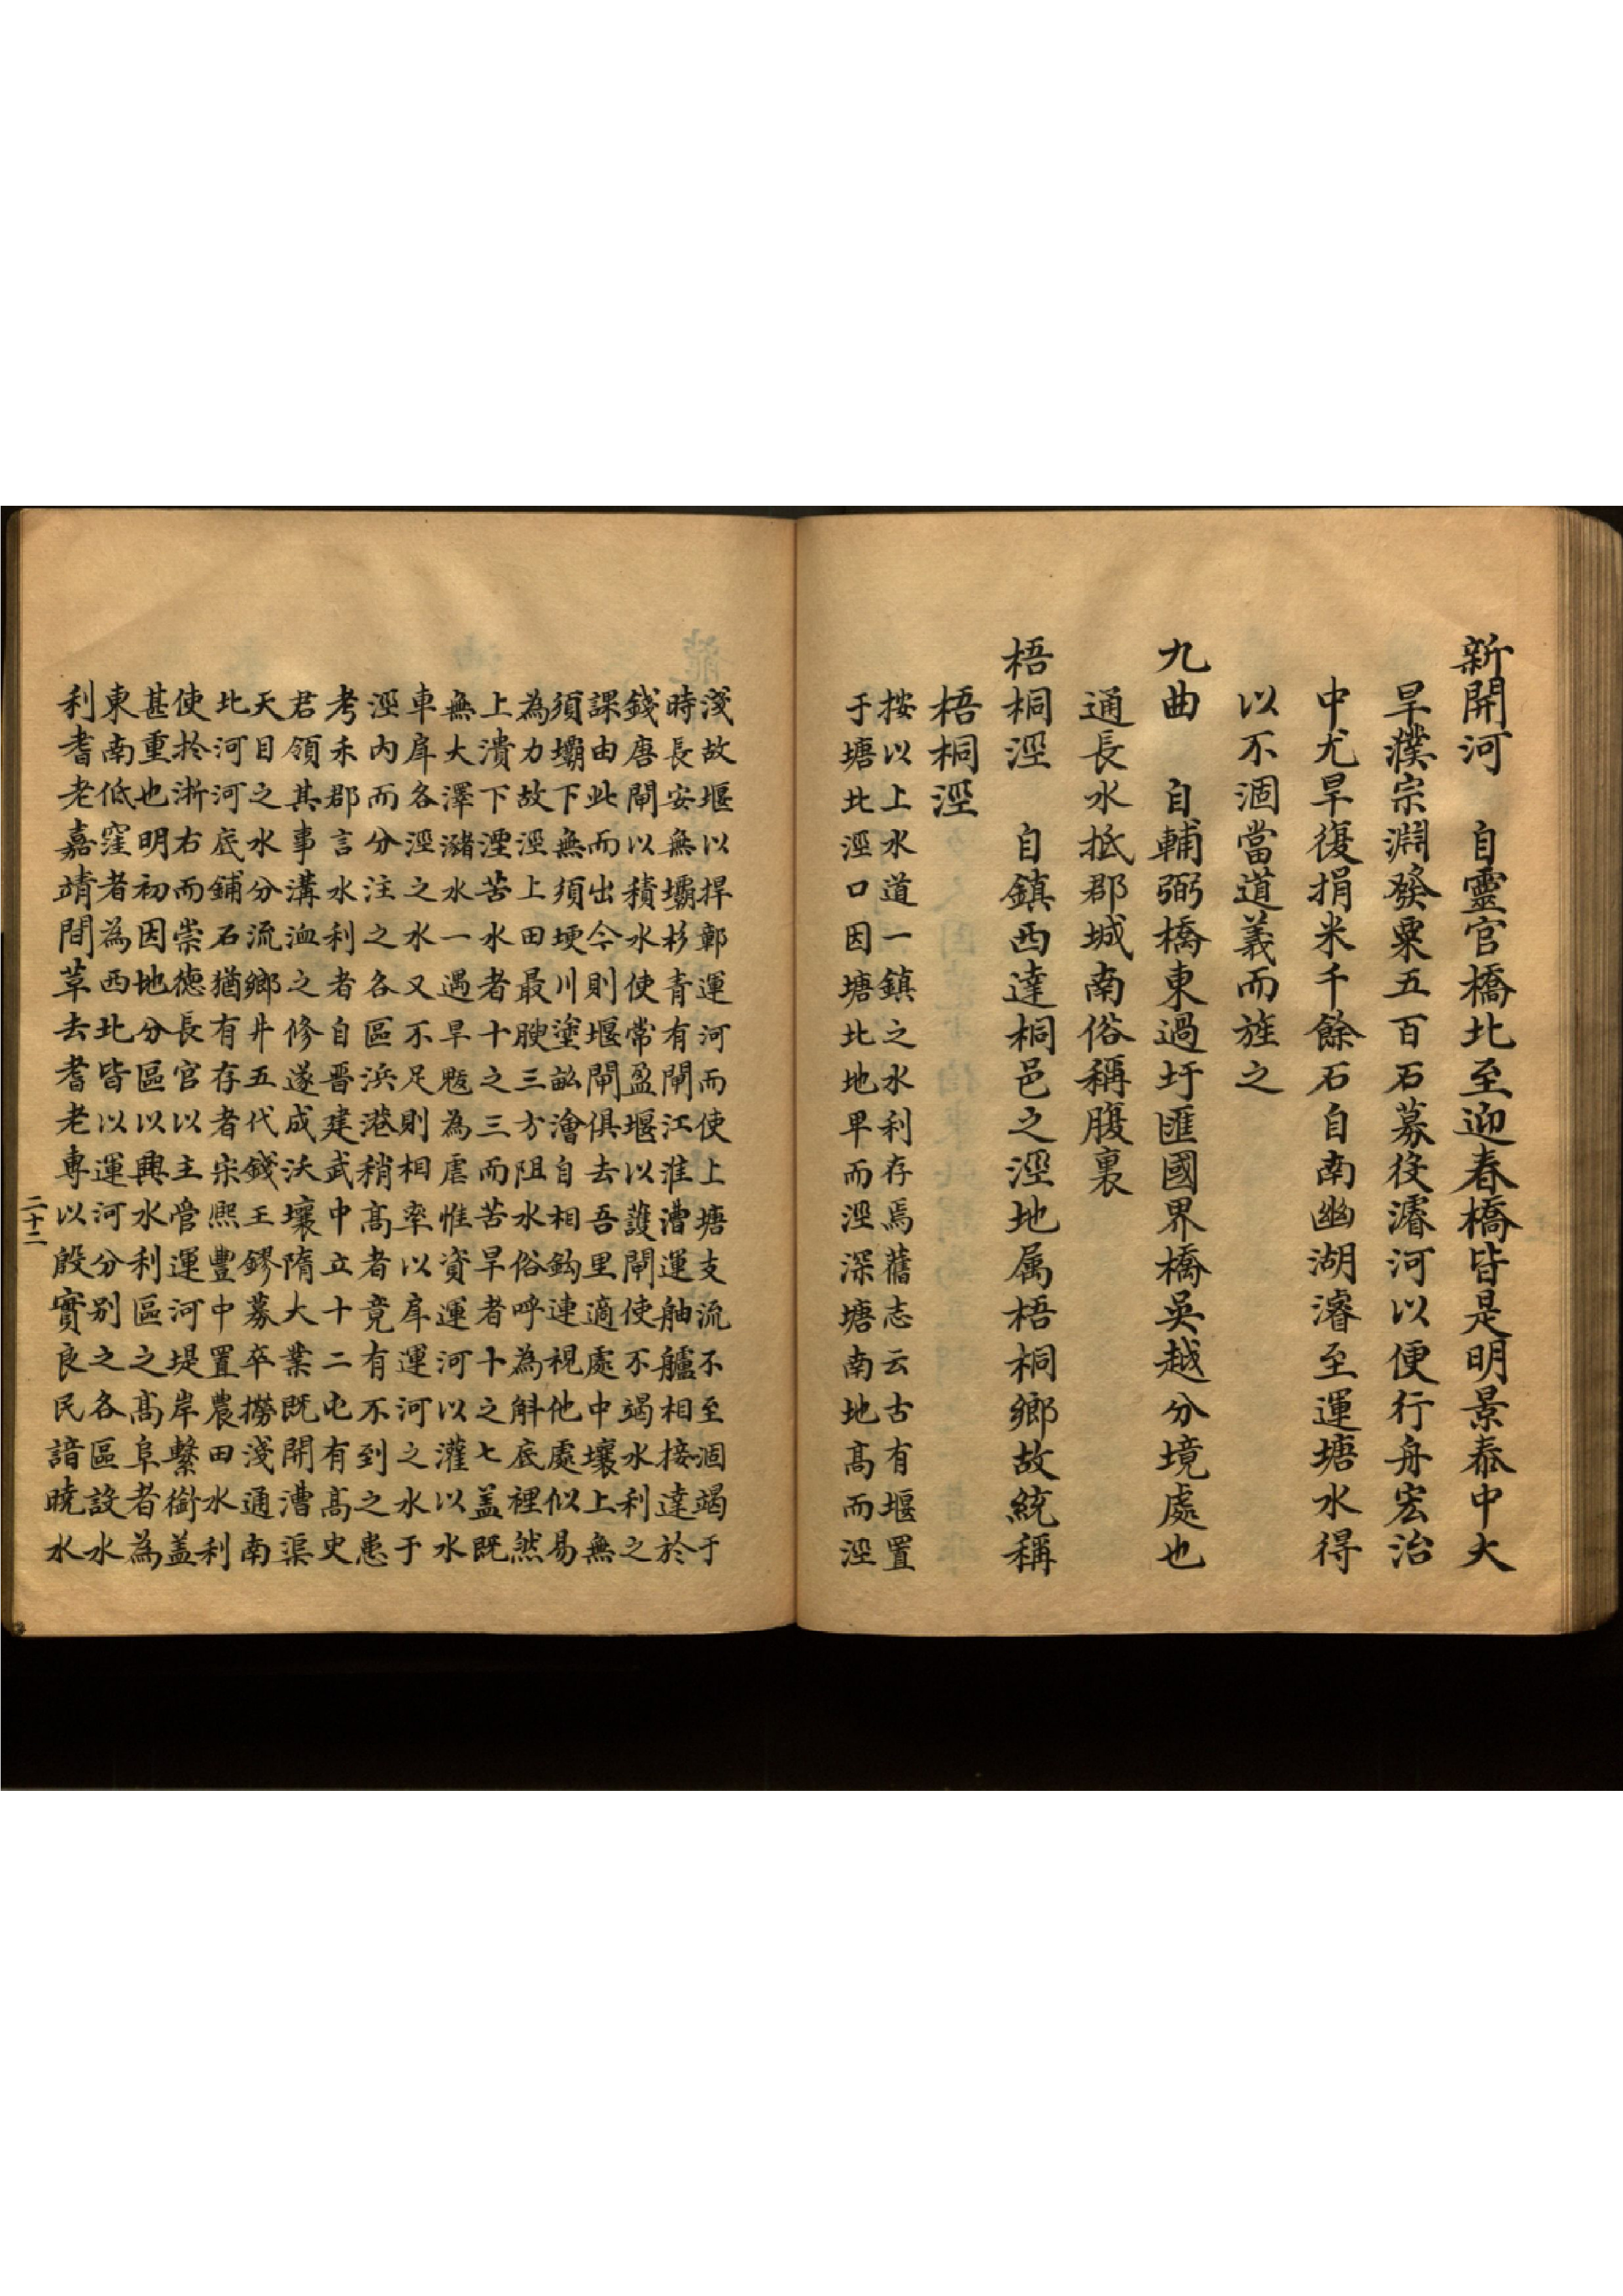 新開河　自靈官橋北至迎春橋皆是明景泰中大
旱濮宗淵發粟五百石募役濬河以便行舟宏治
中尤旱復捐米千餘石自南幽湖濬至運塘水得
以不涸當道義而旌之
九曲　自輔弼橋東過圩匯國界橋吳越分境處也
通長水抵郡城南俗稱腹裏
梧桐涇　自鎮西達桐邑之涇地属梧桐鄉故統稱
梧桐涇
按以上水道一鎮之水利存焉舊志云古有堰置
于塘北涇口因塘北地卑而涇深塘南地髙而涇
淺故堰以捍鄣運河而使上塘支流不至涸竭于
時長安無壩杉青有閘江淮漕運舳艫相接達於
錢唐閘以積水使常盈堰以護閘使不竭水利之
課由此而出今則堰閘俱去吾里適處中壤上無
須壩下無須埂川塗畝澮自相鈎連視他處似易
為力故涇上田最腴三方阻水俗呼為斛底裡然
上潰下溼苦水者十之三而苦旱者十之七盖既
無大澤瀦水一遇旱魃為虐惟資運河以灌以水
車戽各涇之水又不足則相率以戽運河之水于
涇内而分注之各區浜港稍髙者竟有不到之患
考禾郡言水利者自晋建武中立十二屯有髙史
君領其事溝洫之修遂成沃壤隋大業既開漕渠
天目之水分流鄉井五代錢王鏐募卒撈淺通南
北河河底鋪石猶有存者宋熙豐中置農田水利
使扵浙右而崇德長官以主管運河堤岸繫銜盖
甚重也明初因地分區以興水利區之髙阜者為
東南低窪者為西北皆以運河分别之各區設水
利耆老嘉靖間草去耆老專以殷實良民諳曉水
二十二